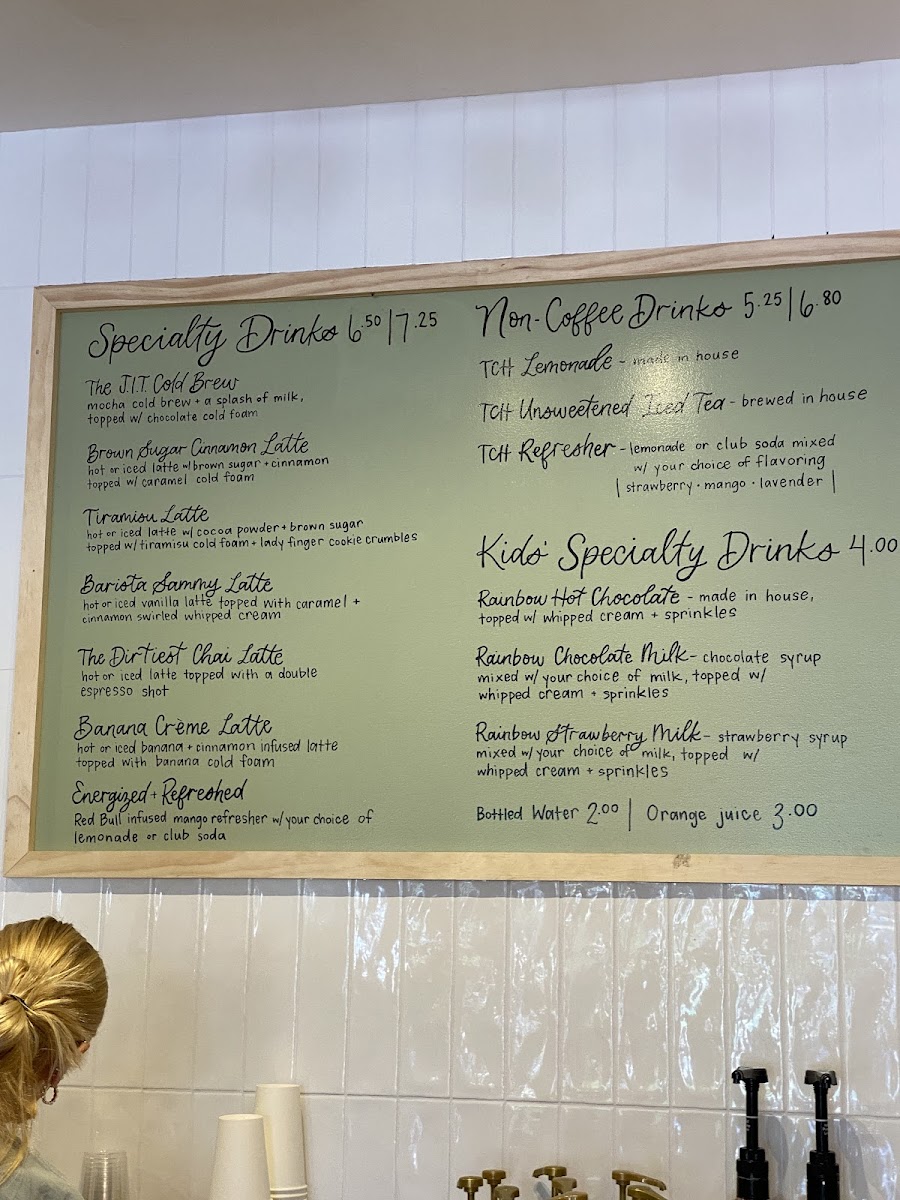 Specialty Drinks 6.50|7.25
The J.I.T. Cold Brew
mocha cold brew + a splash of milk,
topped w/ chocolate cold foam
Brown Sugar Cinnamon Latte
hot or iced latte w/ brown sugar + cinnamon
topped w/ caramel cold foam
Tiramisu Latte
hot or iced latte w/ cocoa powder + brown sugar
topped w/ tiramisu cold foam + lady finger cookie crumbles
Barista Sammy Latte
hot or iced vanilla latte topped with caramel +
cinnamon swirled whipped cream
The Dirtiest Chai Latte
hot or iced latte topped with a double
espresso shot
Banana Crème Latte
hot or iced banana + cinnamon infused latte
topped with banana cold foam
Energized + Refreshed
Red Bull infused mango refresher w/ your choice of
lemonade or club soda
Non-Coffee Drinks 5.25|6.80
TCH Lemonade - made in house
TCH Unsweetened Iced Tea - brewed in house
TCH Refresher - lemonade or club soda mixed
w/ your choice of flavoring
| strawberry · mango · lavender |
Kids' Specialty Drinks 4.00
Rainbow Hot Chocolate - made in house,
topped w/ whipped cream + sprinkles
Rainbow Chocolate Milk - chocolate syrup
mixed w/ your choice of milk, topped w/
whipped cream + sprinkles
Rainbow Strawberry Milk - strawberry syrup
mixed w/ your choice of milk, topped w/
whipped cream + sprinkles
Bottled Water 2.00 | Orange juice 3.00